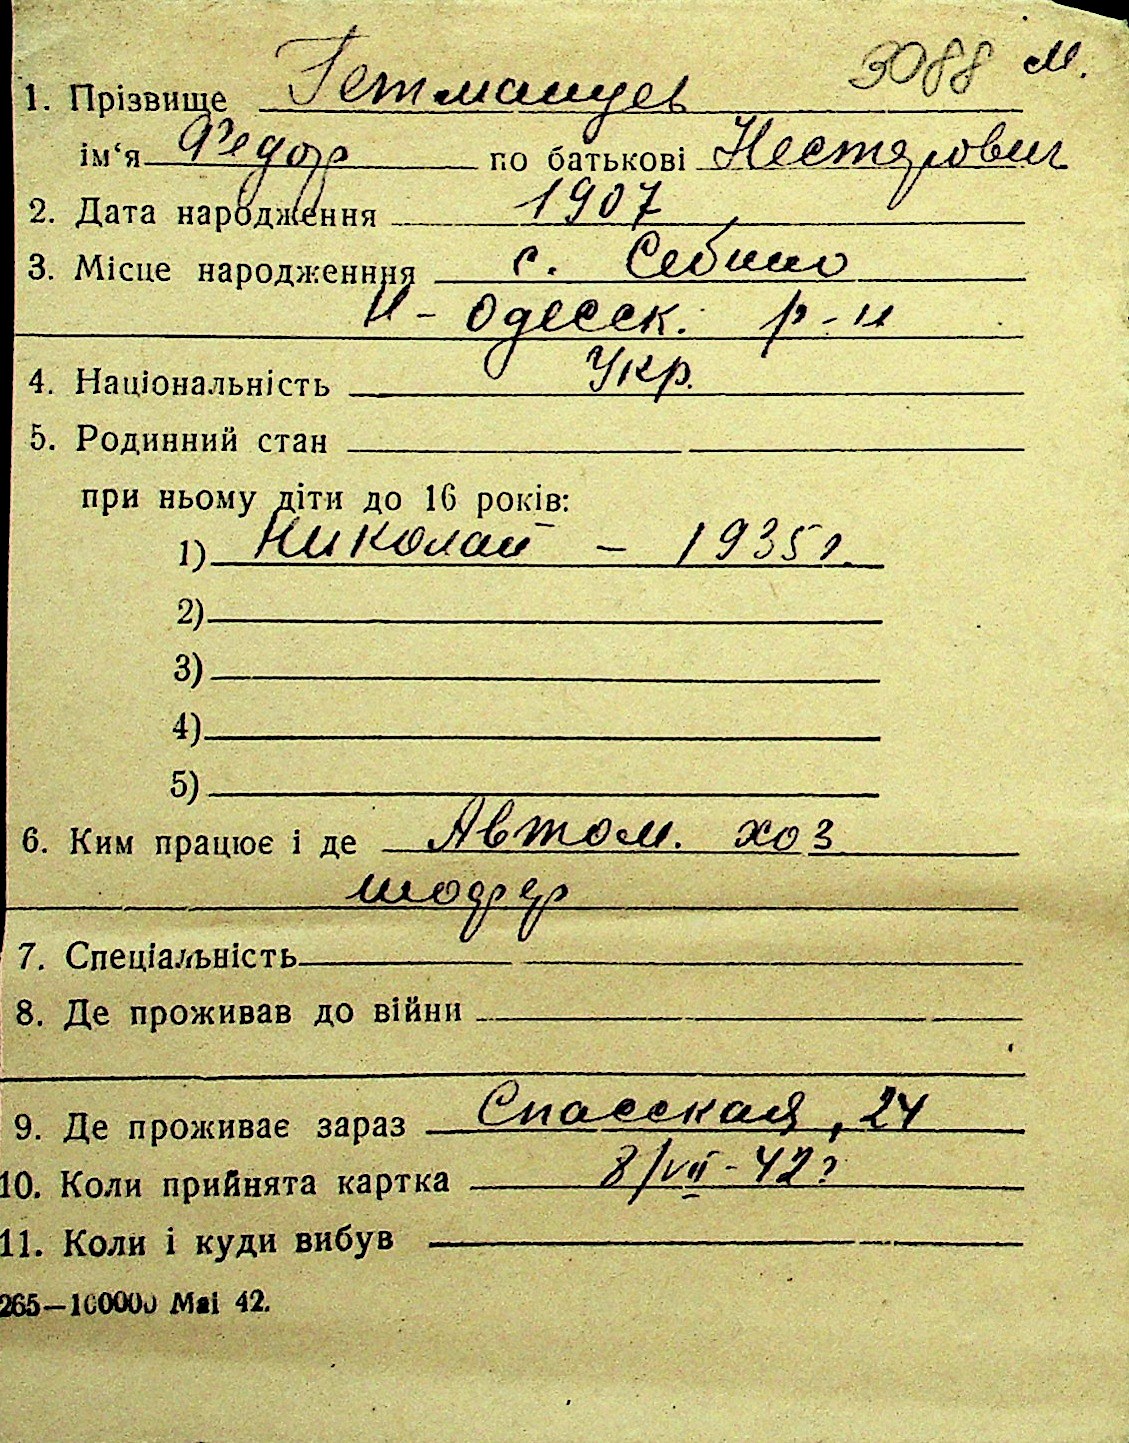 3088 м.
1. Прізвище Гетманцев
ім‘я Федор по батькові Нестерович
2. Дата народження 1907
3. Місце народженння с. Себино
Н-Одесск. р-н
4. Національність Укр.
5. Родинний стан
при ньому діти до 16 років:
1) Николай – 1935 г.
2)
3)
4)
5)
6. Ким працює і де Автом. хоз
шофер
7. Спеціальність
8. Де проживав до війни
9. Де проживає зараз Спасская, 24
10. Коли прийнята картка 8/VII-42 г
11. Коли і куди вибув
265—100000 Маі 42.